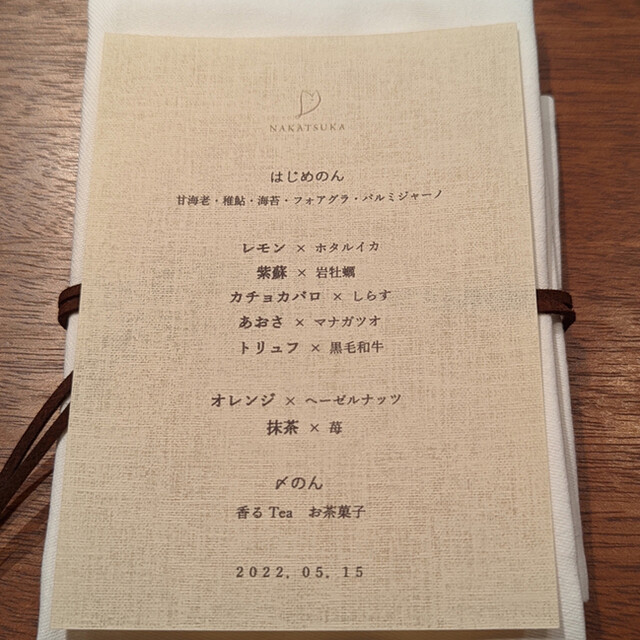 NAKATSUKA
はじめのん
甘海老・稚鮎・海苔・フォアグラ・パルミジャーノ
レモン × ホタルイカ
紫蘇 × 岩牡蠣
カチョカバロ × しらす
あおさ × マナガツオ
トリュフ × 黒毛和牛
オレンジ × ヘーゼルナッツ
抹茶 × 苺
〆のん
香るTea お茶菓子
2022. 05. 15